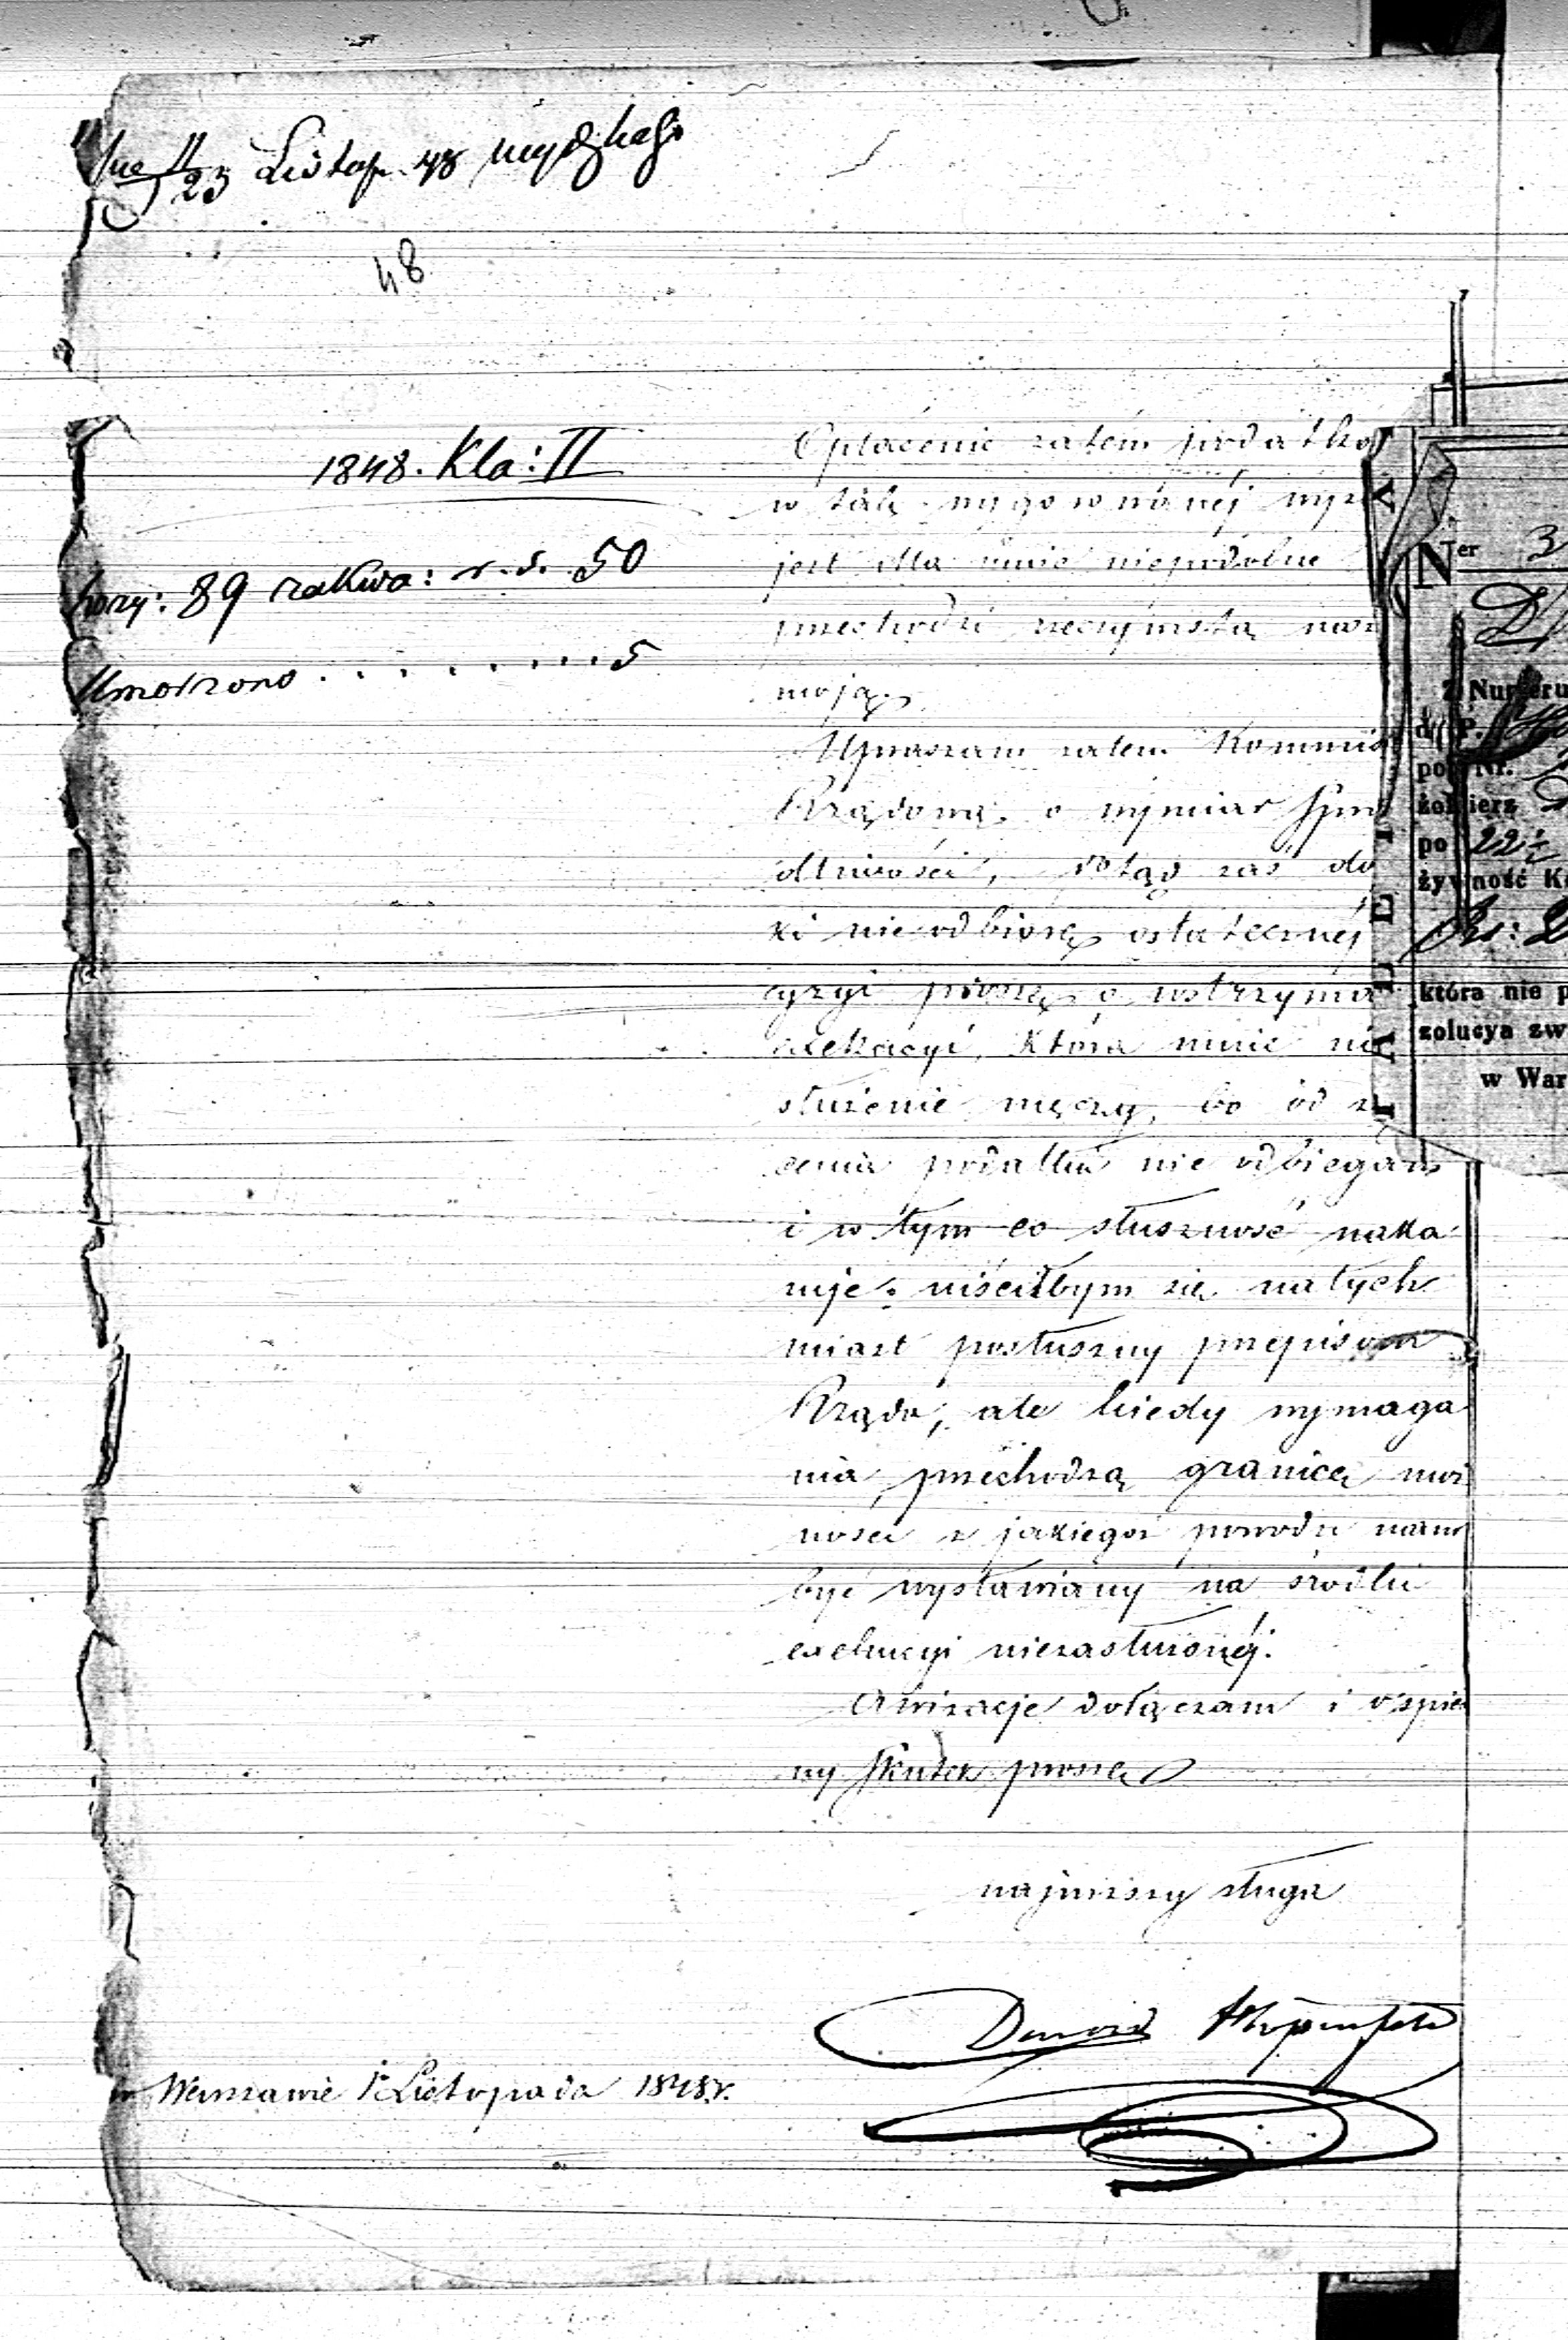 11/23 Listop. 48
48
1848. Kla: II
pozy: 89 zakwa: r. s. 50
Umorzono . . . . . . . . 5
Opłacenie zatém podatko
w talę wygórowanéj
jest dla mnie niepodobne
przechodzi rzeczywistą
moją.
Upraszam zatem Kommis
Rządową o wymiar Spra
dliwości, dotąd zaś do
ki nie odbiorę ostatecznéj
cyzyi proszę o wstrzyma
exekucyi, która mnie nie
słuźenie męczy, bo od
cenia podatku nie odbiegam
i w tym co słuszność naka
zuje, uiściłbym się natych
miast posłuszny przepisom
Rządu, ale kiedy wymaga
nia przechodzą granicę moż
ności z jakiegoż powodu mam
być wystawiany na środki
exekucyi niezasłużonéj.
Awizacje dołączam i o śpie
ny Skutek proszę
najniższy sługa
Dawid
w Warszawie 1 Listopada 1848 r.
TALLE
Ner 3
Z Numeru
d P.
pod Nr.
żołnierz
po 22½
żywność K
Rs: 2
która nie p
zolucya zw
w War